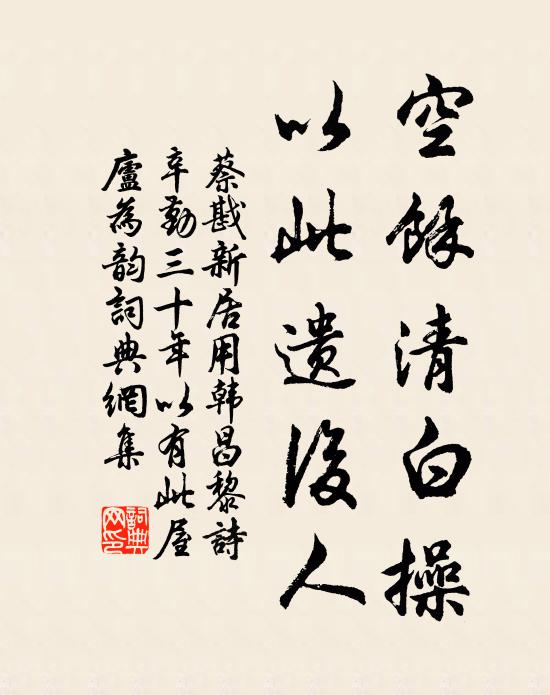 空餘清白操
以此遺後人
蔡戡新居用韩昌黎詩
辛勤三十年以有此屋
廬為韵詞典網集
詞典
网印